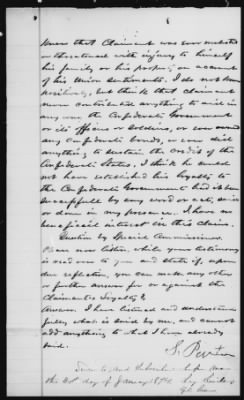 know that Claimant was ever molested
or threatened with injury to himself
his family or his property on account
of his Union sentiments. I do not know
positively, but think that claimant
never contributed anything to aid in
any way the Confederate Government
or its officers or soldiers, or ever owned
any Confederate bonds, or ever did
anything to sustain the credit of the
Confederate States. I think he could
not have established his loyalty to
the Confederate Government had it been
successful by any word or act, said
or done in my presence. I have no
beneficial interest in this claim.
Question by Special Commissioner.
Please now listen, while your testimony
is read over to you and state if, upon
due reflection, you can make any other
or further answer for or against the
Claimants loyalty?
Answer. I have listened and understand
fully what is said by me, and cannot
add anything to what I have already
said.
S.
Sworn to and subscribed before me
the day of January